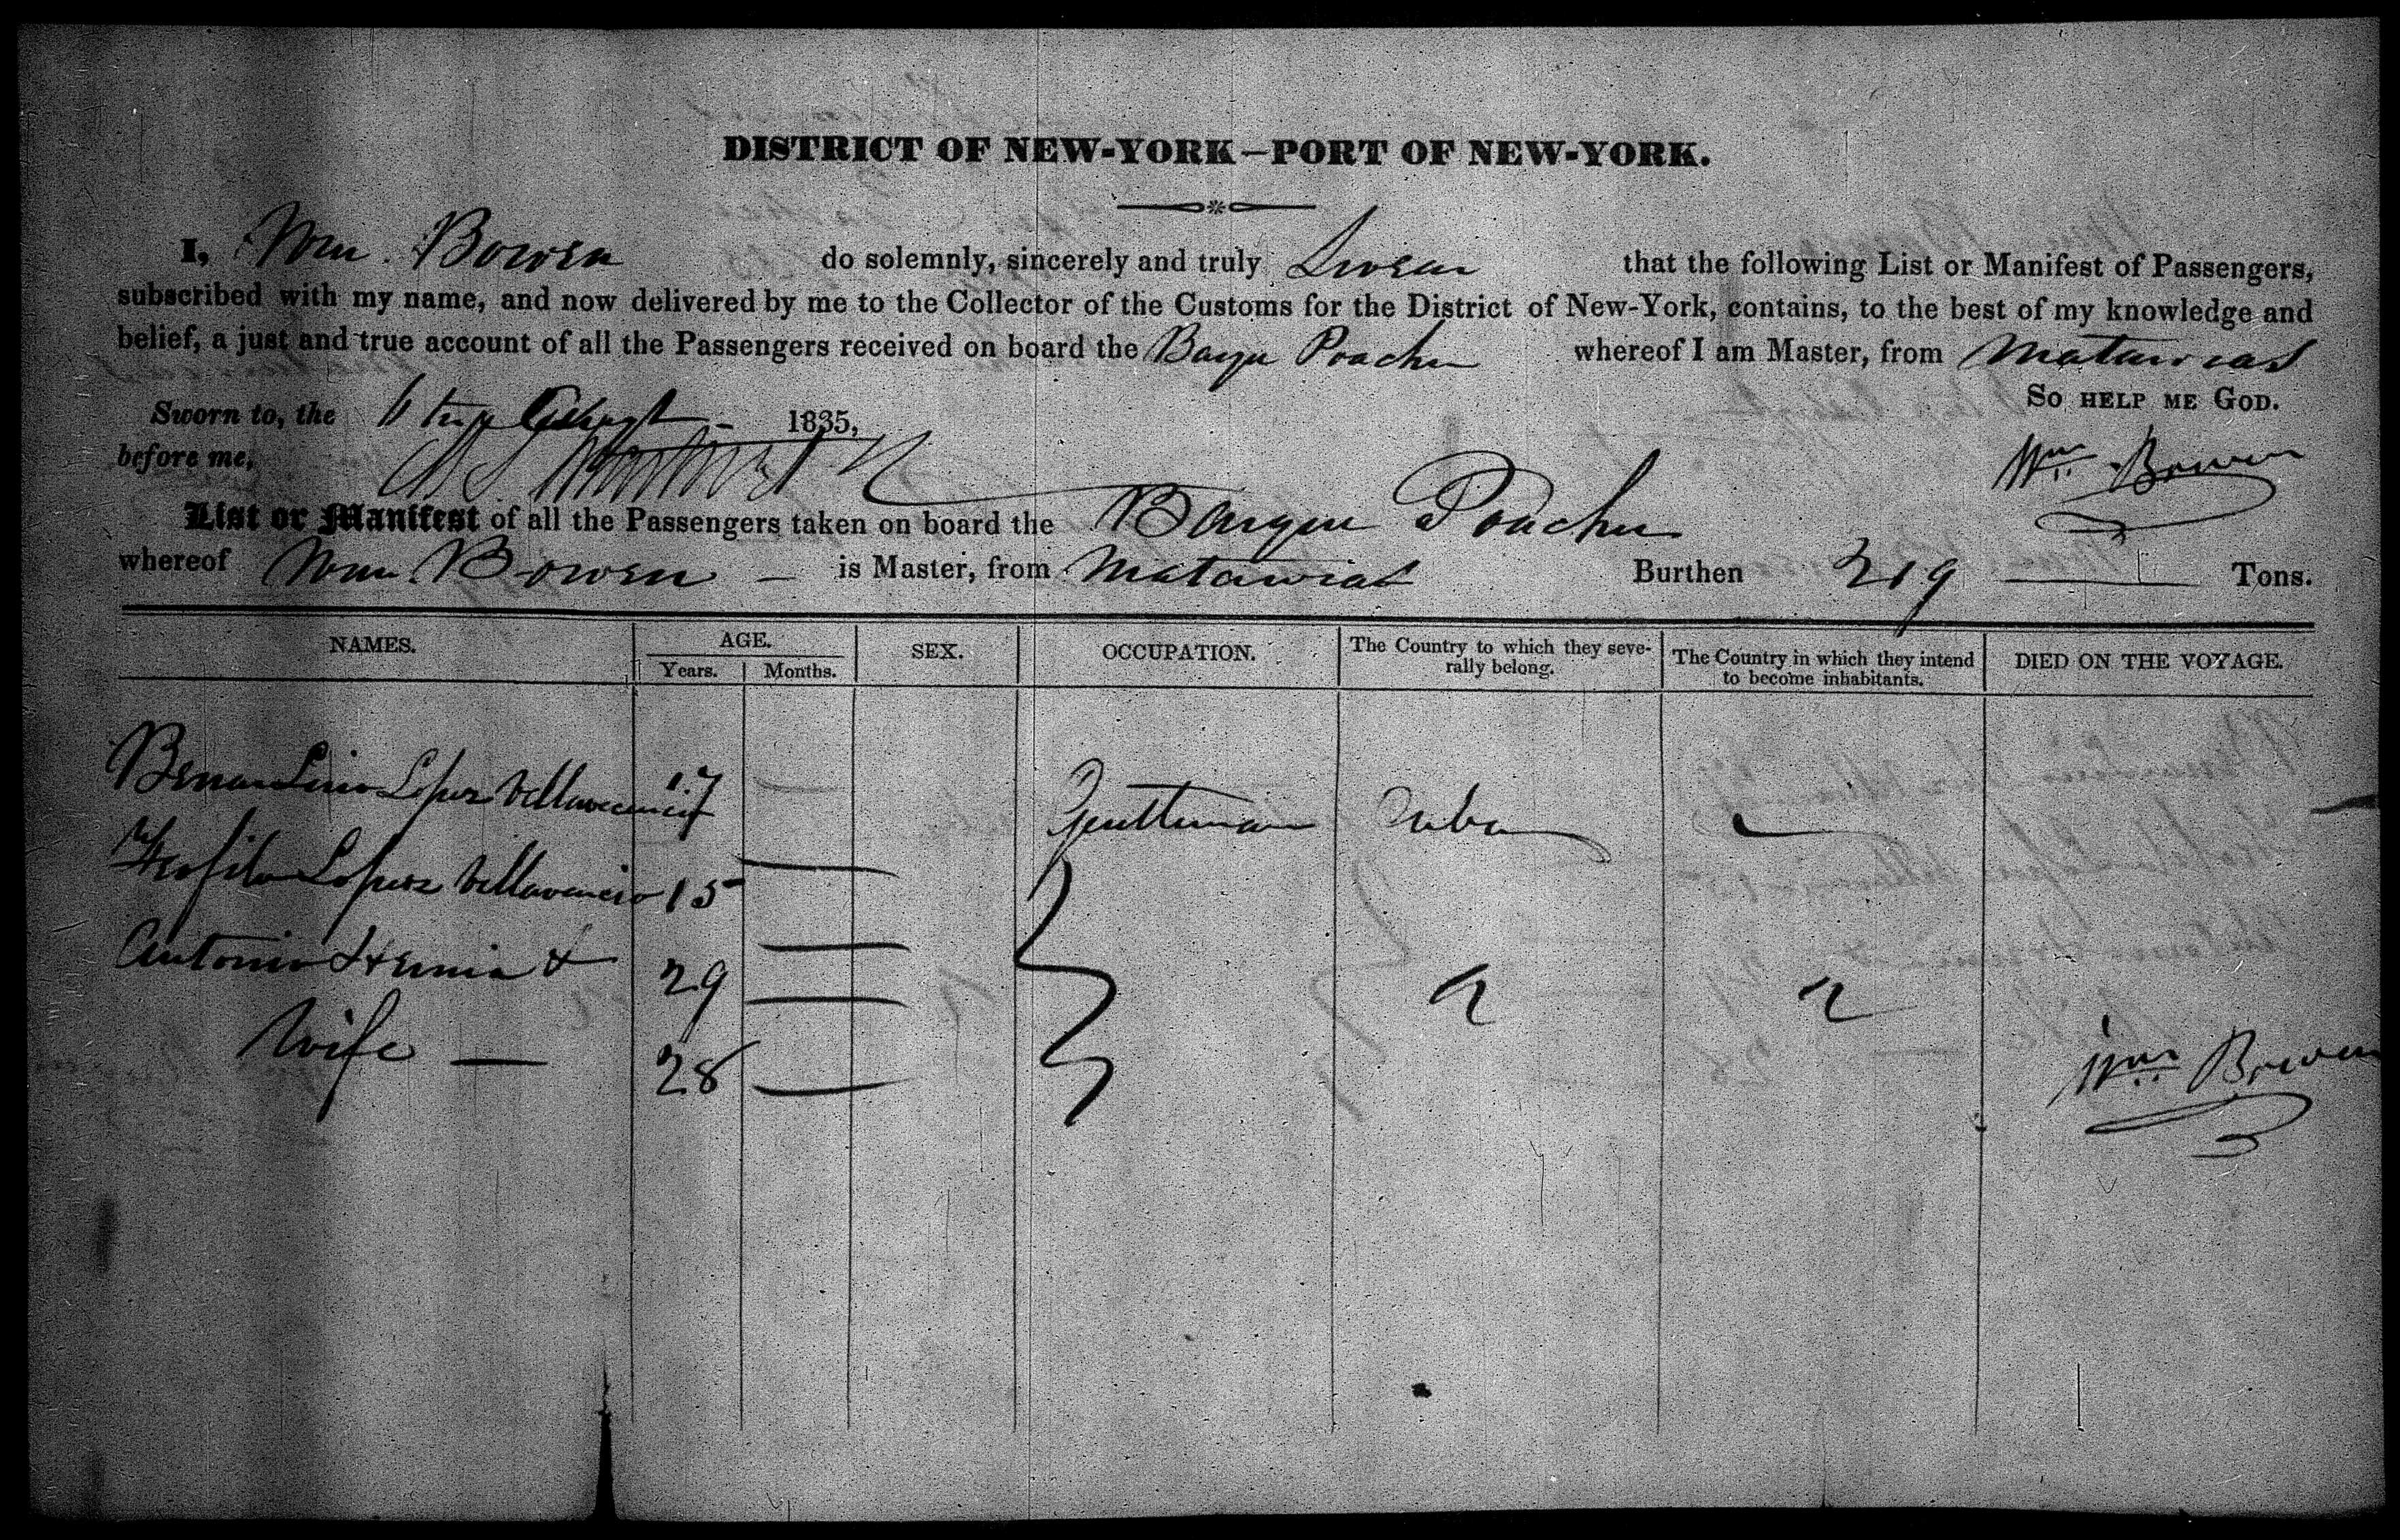 DISTRICT OF NEW-YORK—PORT OF NEW-YORK.
I, Wm. Bowen do solemnly, sincerely and truly Swear that the following List or Manifest of Passengers,
subscribed with my name, and now delivered by me to the Collector of the Customs for the District of New-York, contains, to the best of my knowledge and
belief, a just and true account of all the Passengers received on board the Barque Poacher whereof I am Master, from Matanzas
So HELP ME GOD.
Sworn to, the 1835,
before me,
Wm Bowen
List or Manifest of all the Passengers taken on board the Barque Poacher
whereof Wm. Bowen — is Master, from Matanzas Burthen 219 Tons.
NAMES. AGE. SEX. OCCUPATION. The Country to which they seve-rally belong. The Country in which they intend to become inhabitants. DIED ON THE VOYAGE.
Years. Months.
Bernardino Lopez Villavicencio 17 Gentleman Cuba
Teofilo Lopez Villavicencio 15
Antonio & 29
Wife — 28
Wm Bowen